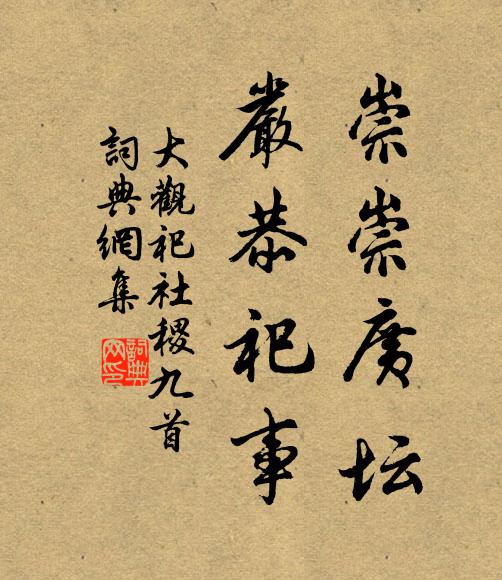 崇崇廣坛
嚴恭祀事
大觀祀社稷九首
詞典網集
詞典网印